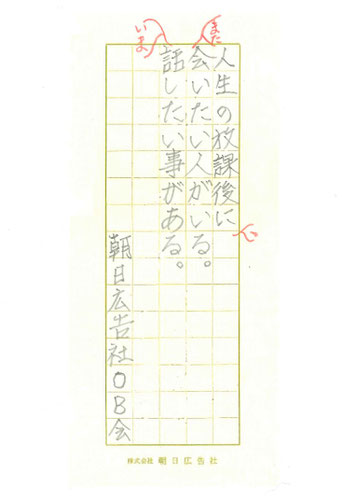 人生の放課後に、
また会いたい人がいる。
いま話したい事がある。
朝日広告社OB会
株式会社 朝日広告社